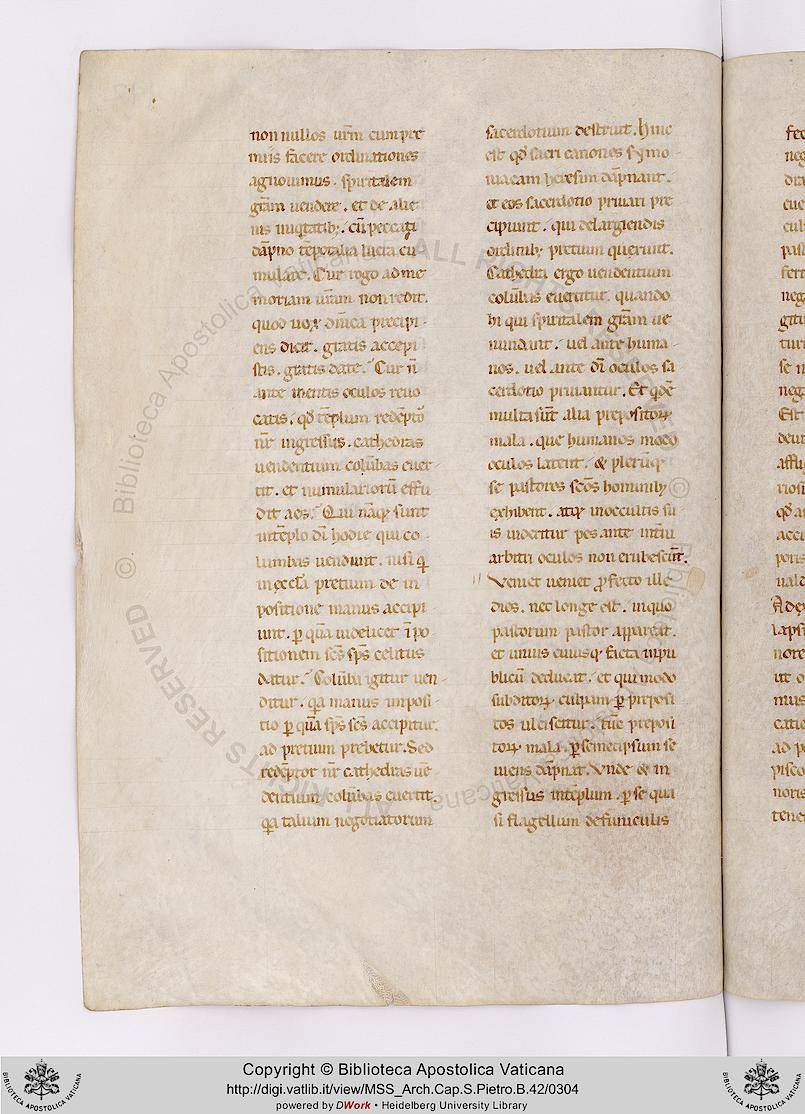 non nullos urm̄ cum pre
miis facere ordinationes
agnouimus. spiritalem
grām uendere. et de alie
nis iniqtatib; cū peccati
dāpno tēporalia lucra cu
mulare. Cur rogo ad me
moriam uram̄ non redit.
quod uox dnica precipi
ens dicit. gratis accepi
stis. gratis date. Cur n̄
ante mentis oculos reuo
catis. qd tēplum redēptō
nr̄ ingressus. cathedras
uendentium colūbas euer
tit. et numulariorū effu
dit aes. Qui nāq; sunt
in tēplo dī hodie qui co
lumbas uendunt. nisi q̄
in ęccla pretium de in
positione manus accipi
unt. p quā uidelicet īpo
sitionem scs sps celitus
datur. Colūba igitur uen
ditur. qa manus imposi
tio p quā sps scs accipitur.
ad pretium prebetur. Sed
redēptor nr̄ cathedras uē
dentium colūbas euertit.
qa talium negotiatorum
sacerdotium destruit. Hinc
est qd sacri canones symo
niacam heresim dāpnant.
et eos sacerdotio priuari pre
cipiunt. qui de largiendis
ordinib; pretium querunt.
Cathedra ergo uendentium
colūbas euertitur. quando
hi qui spiritalem grām ue
nundant. uel ante huma
nos. uel ante dī oculos sa
cerdotio priuantur. Et qdē
multa sūt alia prepositorꝝ
mala. que humanos modo
oculos latent. & plerūq;
se pastores scōs hominib;
exhibent. atq; in occultis su
is inueritur pes ante intnī
arbitri oculos non erubescūt.
Veniet ueniet pfecto ille
dies. nec longe est. in quo
pastorum pastor appareat.
et unius cuiusq; facta in pu
blicū deducat. et qui modo
subditorꝝ culpam p preposi
tos ulciscitur. tūc preposi
torꝝ mala. p semetipsum se
uiens dāpnat. Vnde & in
gressus in tēplum. p se qua
si flagellum de funiculis
Copyright © Biblioteca Apostolica Vaticana
http://digi.vatlib.it/view/MSS_Arch.Cap.S.Pietro.B.42/0304
powered by DWork • Heidelberg University Library